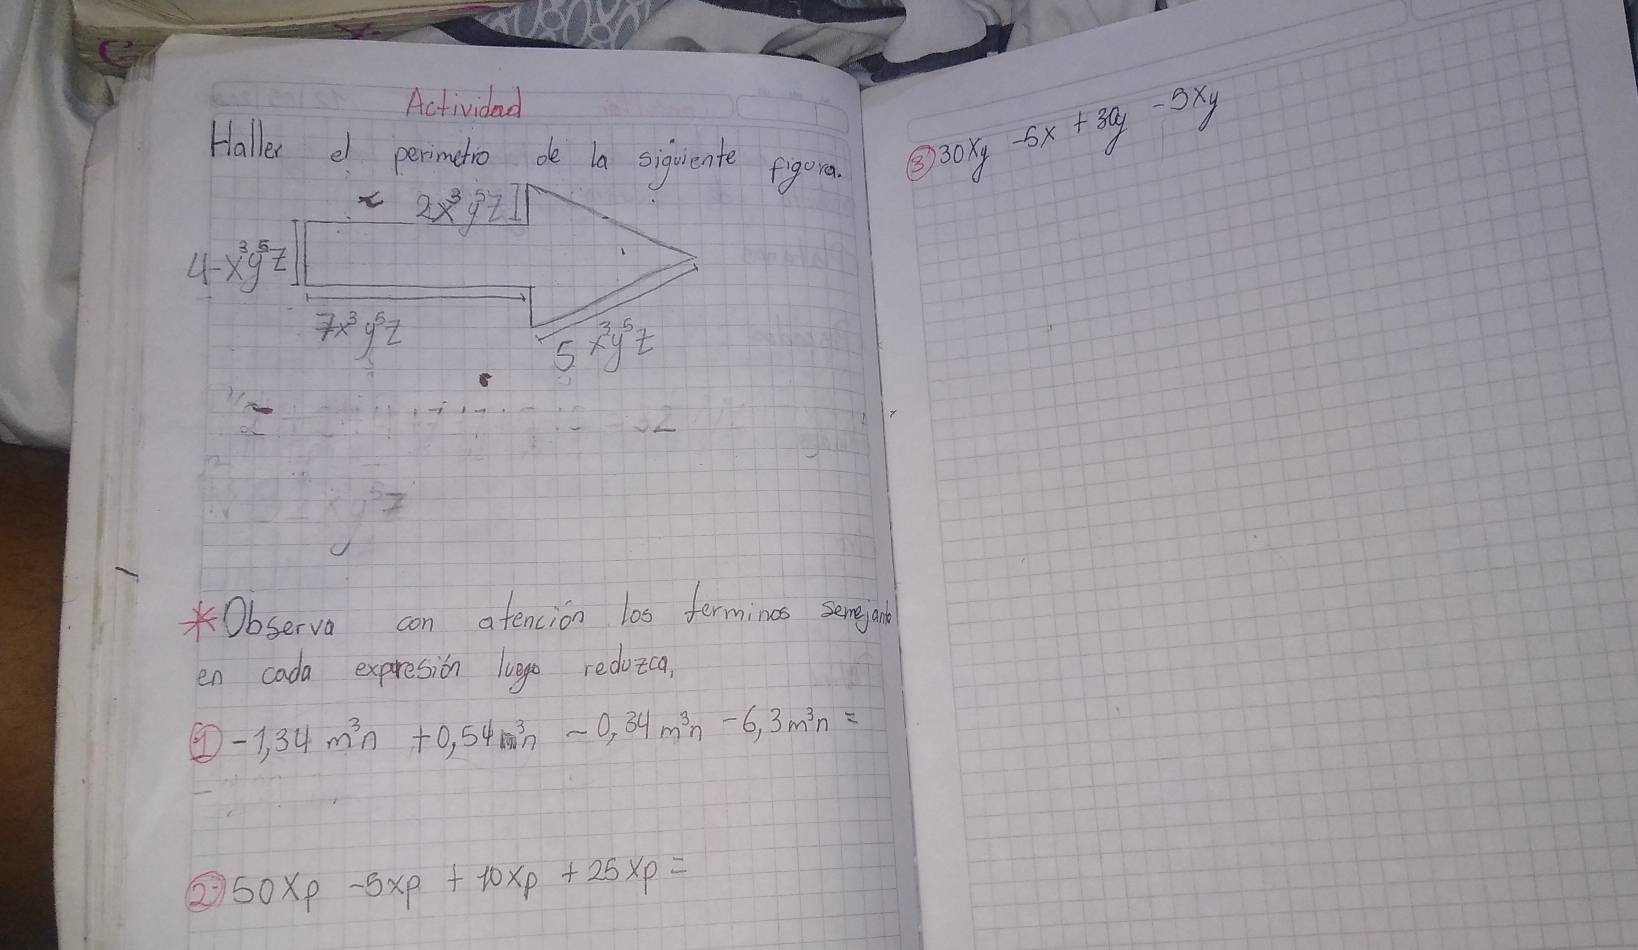 Actividad
Haller el perimetro de la siguiente figura.
2x³y⁵z
4x³y⁵z
7x³y⁵z
5x³y⁵z
*Observa con atención los terminos semejante
en cada expresión luego reduzca,
① -1,34 m³n +0,54m³n -0,34m³n -6,3m³n =
② 50xp -5xp + 10xp + 25xp =
③ 30xy -5x +30y -5xy